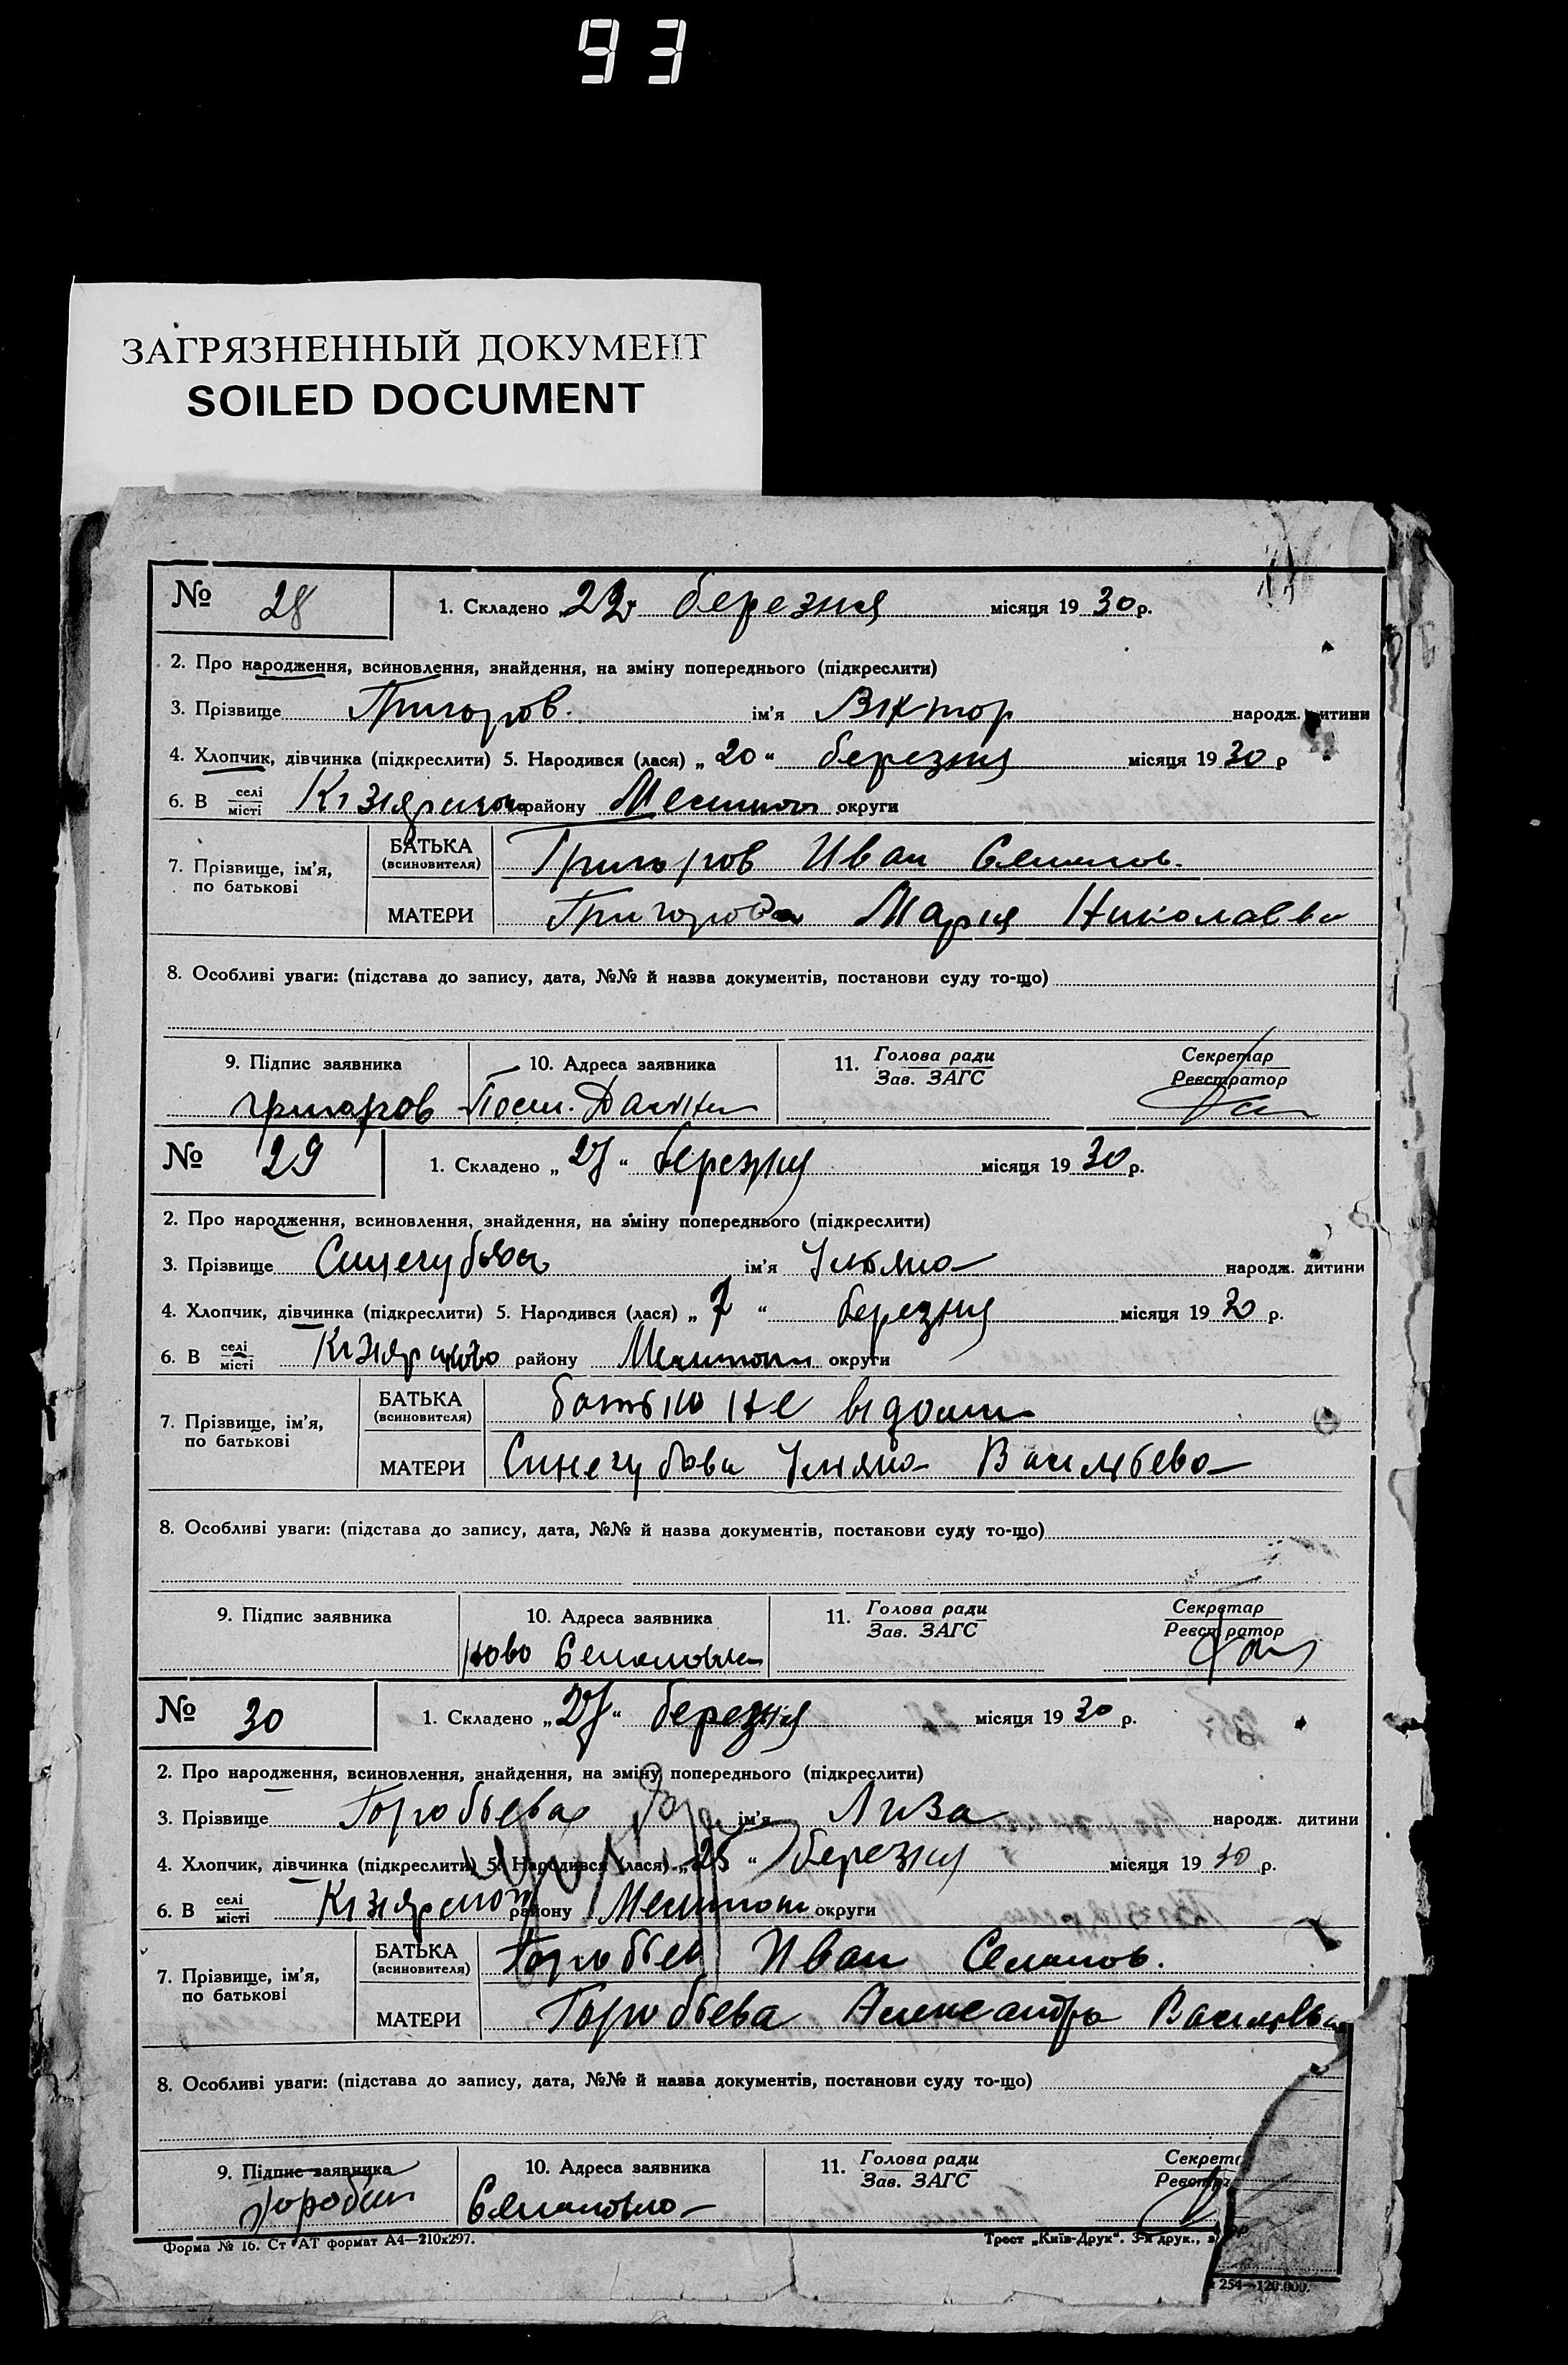 93
ЗАГРЯЗНЕННЫЙ ДОКУМЕНТ
SOILED DOCUMENT
№ 28 1. Складено „22 березня місяця 1930 р.
2. Про народження, всиновлення, знайдення, на зміну попереднього (підкреслити)
3. Прізвище Григоров. ім'я Віктор народж. дитини
4. Хлопчик, дівчинка (підкреслити) 5. Народився (лася) „20“ березня місяця 1930 р
6. В селі місті району округи
БАТЬКА (всиновителя) Григоров Иван
7. Прізвище, ім'я, по батькові
МАТЕРИ Григорова Мария
8. Особливі уваги: (підстава до запису, дата, №№ й назва документів, постанови суду то-що)
9. Підпис заявника 10. Адреса заявника 11. Голова ради Зав. ЗАГС Секретар Реєстратор
григоров
№ 29 1. Складено „27“ березня місяця 1930 р.
2. Про народження, всиновлення, знайдення, на зміну попереднього (підкреслити)
3. Прізвище ім'я народж. дитини
4. Хлопчик, дівчинка (підкреслити) 5. Народився (лася) „7“ березня місяця 1930 р.
6. В селі місті району округи
БАТЬКА (всиновителя) батько не
7. Прізвище, ім'я, по батькові
МАТЕРИ Синегубова
8. Особливі уваги: (підстава до запису, дата, №№ й назва документів, постанови суду то-що)
9. Підпис заявника 10. Адреса заявника 11. Голова ради Зав. ЗАГС Секретар Реєстратор
№ 30 1. Складено „27“ березня місяця 1930 р.
2. Про народження, всиновлення, знайдення, на зміну попереднього (підкреслити)
3. Прізвище Горобьева ім'я Лиза народж. дитини
4. Хлопчик, дівчинка (підкреслити) 5. Народився (лася) „25“ березня місяця 1930 р.
6. В селі місті району округи
БАТЬКА (всиновителя) Иван
7. Прізвище, ім'я, по батькові
МАТЕРИ Горобьева Александра
8. Особливі уваги: (підстава до запису, дата, №№ й назва документів, постанови суду то-що)
9. Підпис заявника 10. Адреса заявника 11. Голова ради Зав. ЗАГС
Форма № 16. Ст АТ формат А4—210x297. Трест „Київ-Друк“. 3-я друк.,
254—120.000.